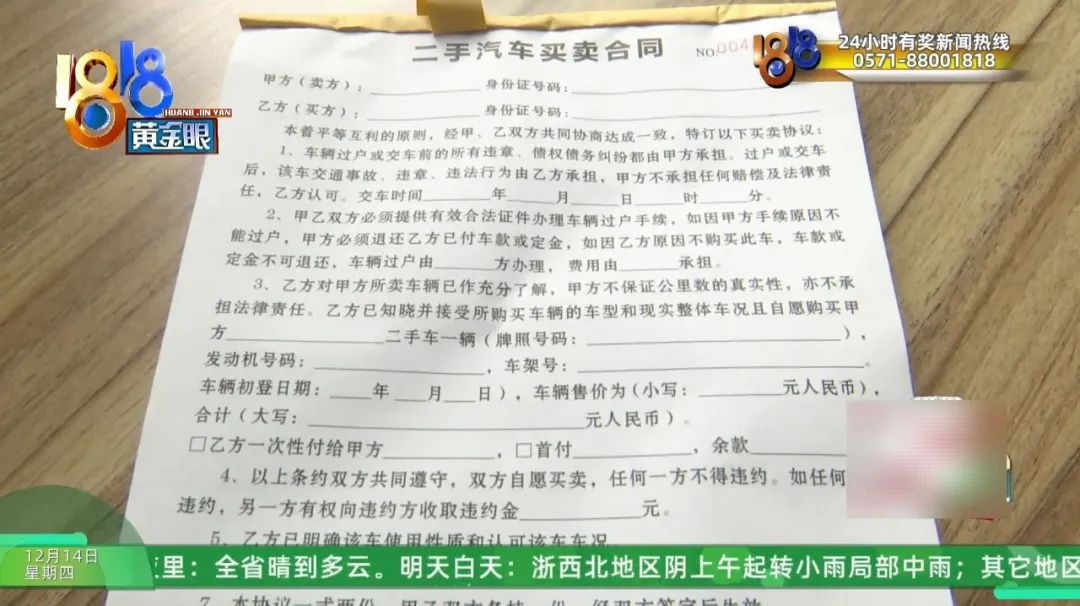 二手汽车买卖合同
NO.004
1818
HUANG JIN YAN
黄金眼
1818
24小时有奖新闻热线
0571-88001818
甲方（卖方）：身份证号码：
乙方（买方）：身份证号码：
本着平等互利的原则，经甲、乙双方共同协商达成一致，特订以下买卖协议：
1、车辆过户或交车前的所有违章、债权债务纠纷都由甲方承担。过户或交车
后，该车交通事故、违章、违法行为由乙方承担，甲方不承担任何赔偿及法律责
任，乙方认可。交车时间______年______月______日______时______分。
2、甲乙双方必须提供有效合法证件办理车辆过户手续，如因甲方手续原因不
能过户，甲方必须退还乙方已付车款或定金，如因乙方原因不购买此车，车款或
定金不可退还，车辆过户由______方办理，费用由______承担。
3、乙方对甲方所卖车辆已作充分了解，甲方不保证公里数的真实性，亦不承
担法律责任。乙方已知晓并接受所购买车辆的车型和现实整体车况且自愿购买甲
方______二手车一辆（牌照号码：______），
发动机号码：______，车架号：______。
车辆初登日期：____年____月____日），车辆售价为(小写：______元人民币)，
合计（大写：______元人民币）。
□乙方一次性付给甲方______，□首付______，余款______
4、以上条约双方共同遵守，双方自愿买卖，任何一方不得违约。如任何
违约，另一方有权向违约方收取违约金______元。
5、乙方已明确该车使用性质和认可该车车况
12月14日
星期四
夜里：全省晴到多云。明天白天：浙西北地区阴上午起转小雨局部中雨；其它地区
7、本协议一式两份，甲乙双方各持一份，经双方签字后生效